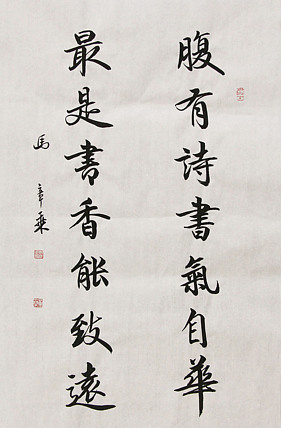 腹有詩書氣自華
最是書香能致遠
馬章乘